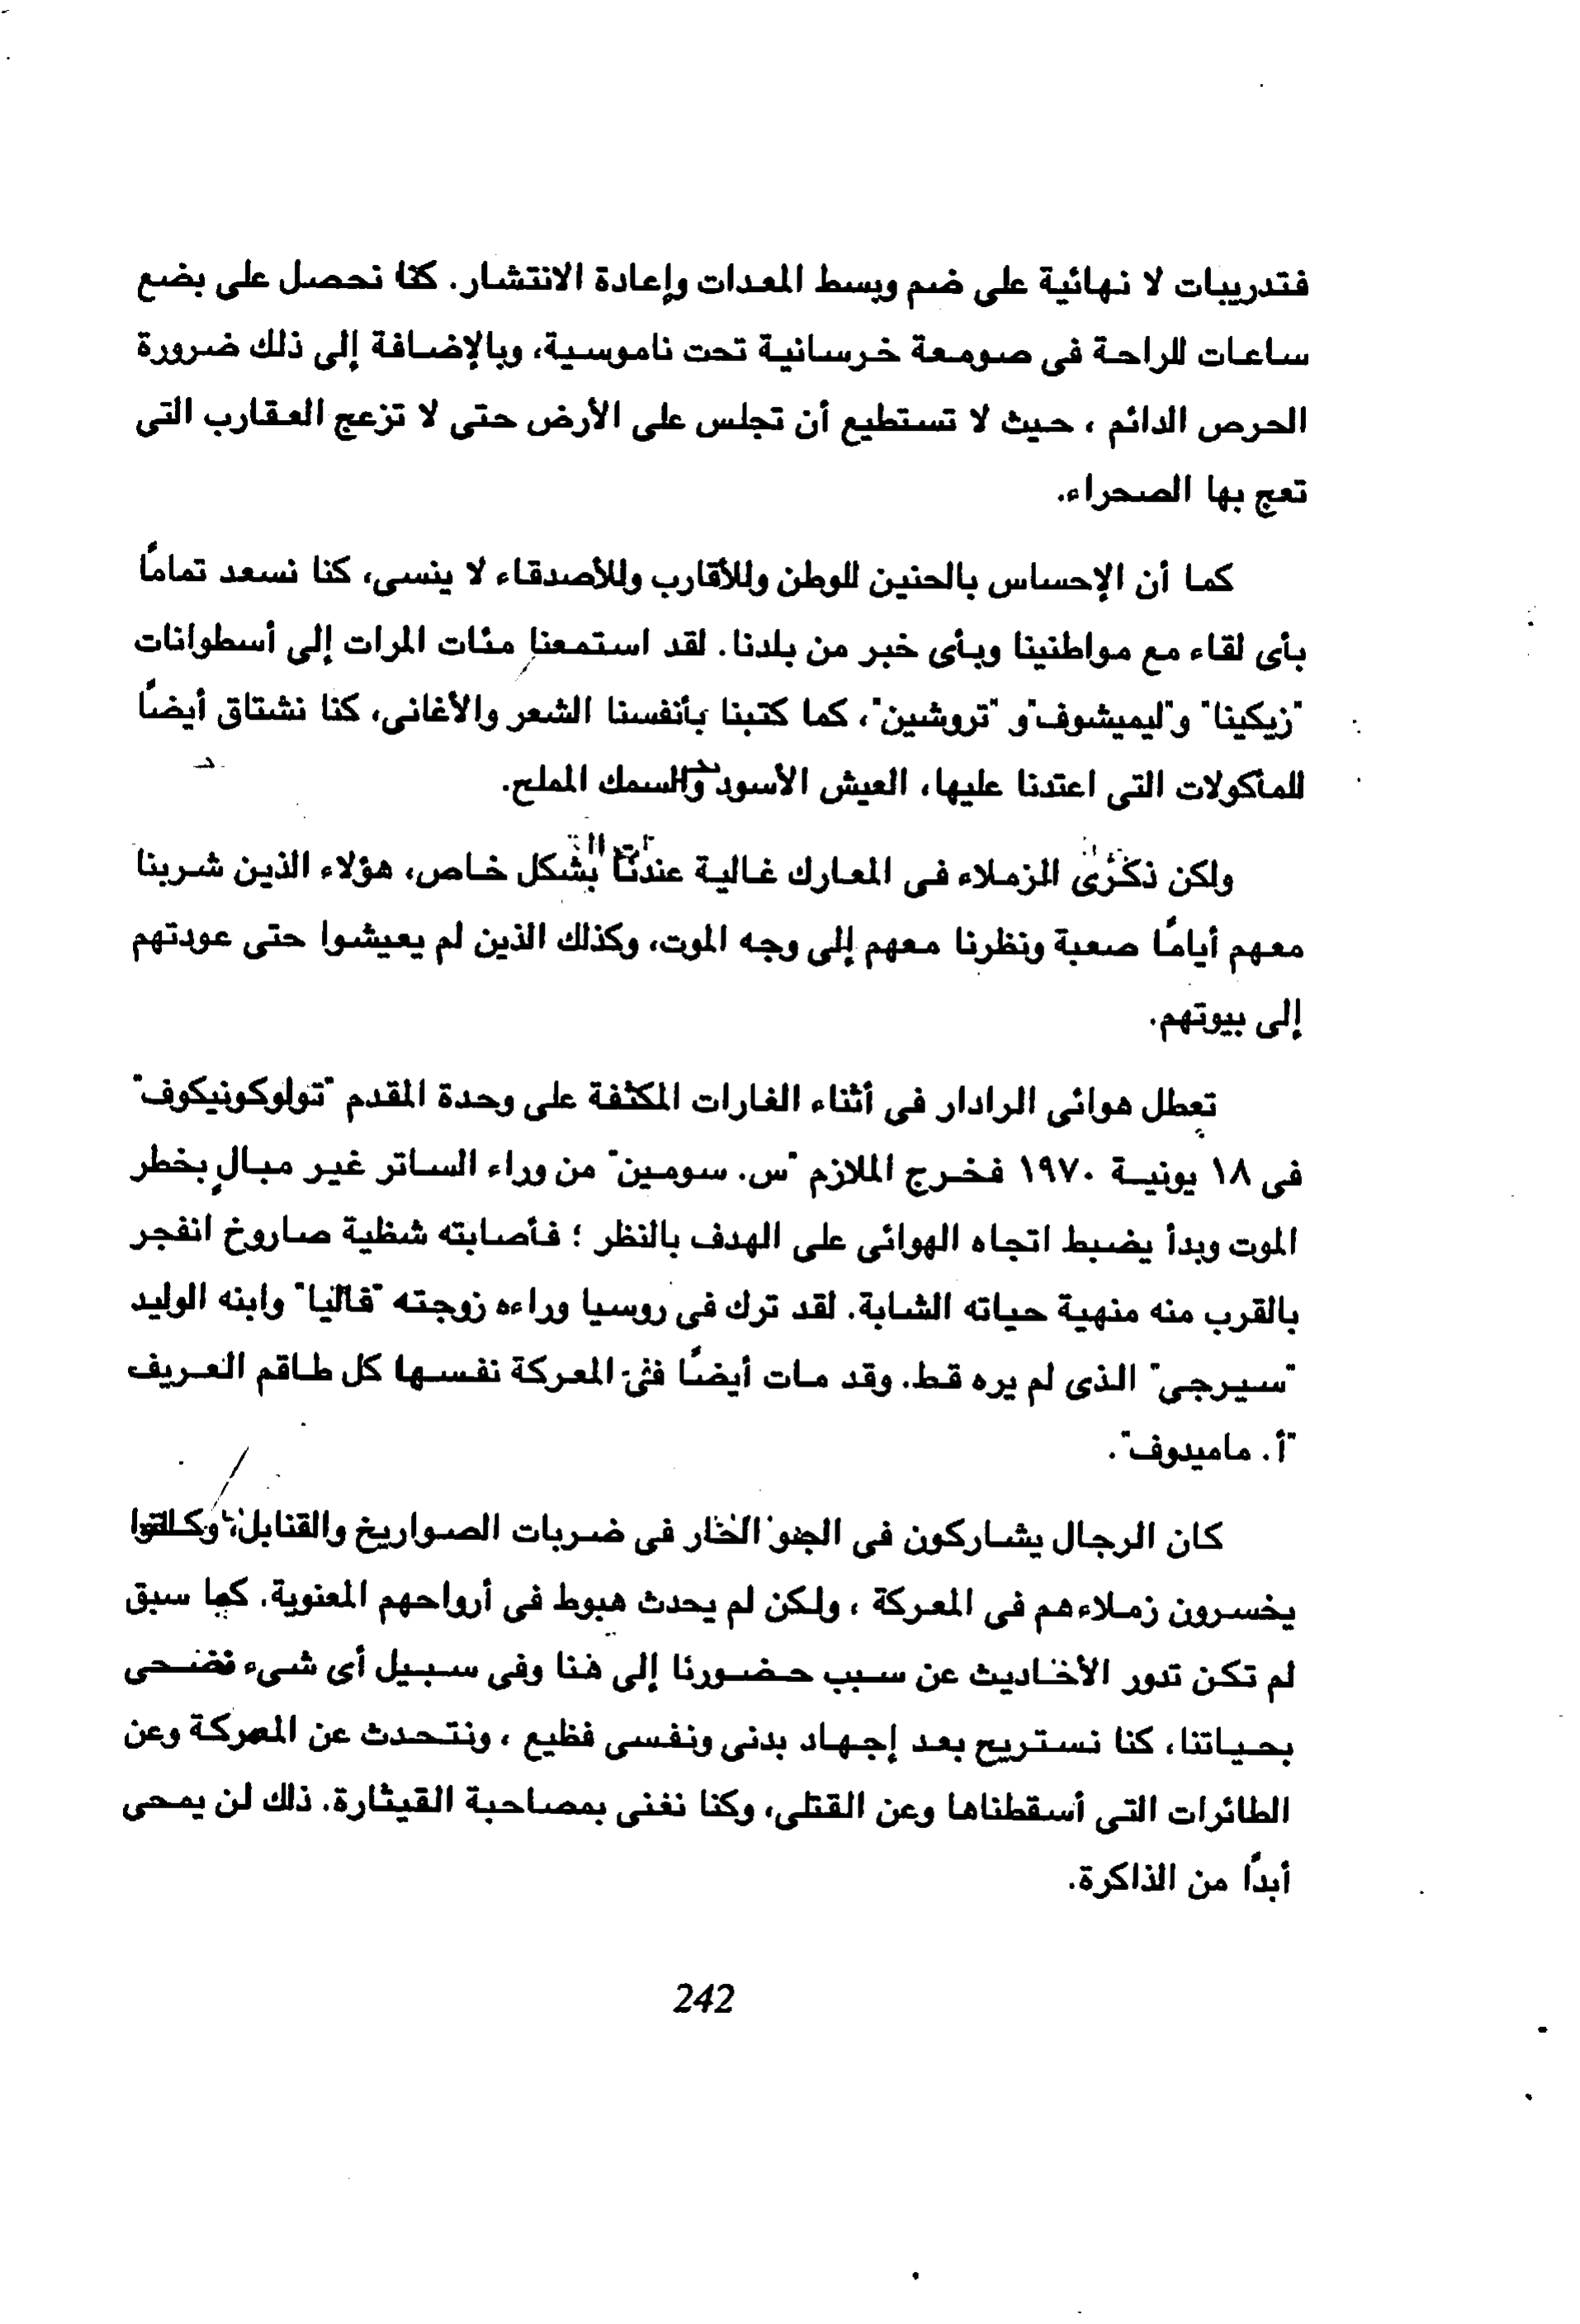 فتدريبات لا نهائية على ضم وبسط المعدات وإعادة الانتشار. كنا نحصل على بضع
ساعات للراحة فى صومعة خرسانية تحت ناموسية، وبالإضافة إلى ذلك ضرورة
الحرص الدائم ، حيث لا تستطيع أن تجلس على الأرض حتى لا تزعج العقارب التى
تعج بها الصحراء.
كما أن الإحساس بالحنين للوطن وللأقارب وللأصدقاء لا ينسى، كنا نسعد تمامًا
بأى لقاء مع مواطنينا وبأى خبر من بلدنا. لقد استمعنا مئات المرات إلى أسطوانات
"زيكينا" و"ليميشوف"و "تروشين"، كما كتبنا بأنفسنا الشعر والأغانى، كنا نشتاق أيضًا
للمأكولات التى اعتدنا عليها، العيش الأسود والسمك المملح.
ولكن ذكرى الزملاء فى المعارك غالية عندنا بشكل خاص، هؤلاء الذين شربنا
معهم أيامًا صعبة ونظرنا معهم إلى وجه الموت، وكذلك الذين لم يعيشوا حتى عودتهم
إلى بيوتهم.
تعطل هوائى الرادار فى أثناء الغارات المكثفة على وحدة المقدم "تولوكونيكوف"
فى ١٨ يونية ١٩٧٠ فخرج الملازم "س. سومين" من وراء الساتر غير مبالٍ بخطر
الموت وبدأ يضبط اتجاه الهوائى على الهدف بالنظر ؛ فأصابته شظية صاروخ انفجر
بالقرب منه منهية حياته الشابة. لقد ترك فى روسيا وراءه زوجته "ڤاليا" وابنه الوليد
"سيرجى" الذى لم يره قط. وقد مات أيضًا فى المعركة نفسها كل طاقم العريف
"أ. ماميدوف".
كان الرجال يشاركون فى الجو الحار فى ضربات الصواريخ والقنابل، وكانوا
يخسرون زملاءهم فى المعركة ، ولكن لم يحدث هبوط فى أرواحهم المعنوية. كما سبق
لم تكن تدور الأحاديث عن سبب حضورنا إلى هنا وفى سبيل أى شىء نضحى
بحياتنا، كنا نستريح بعد إجهاد بدنى ونفسى فظيع ، ونتحدث عن المعركة وعن
الطائرات التى أسقطناها وعن القتلى، وكنا نغنى بمصاحبة القيثارة. ذلك لن يمحى
أبدًا من الذاكرة.
242